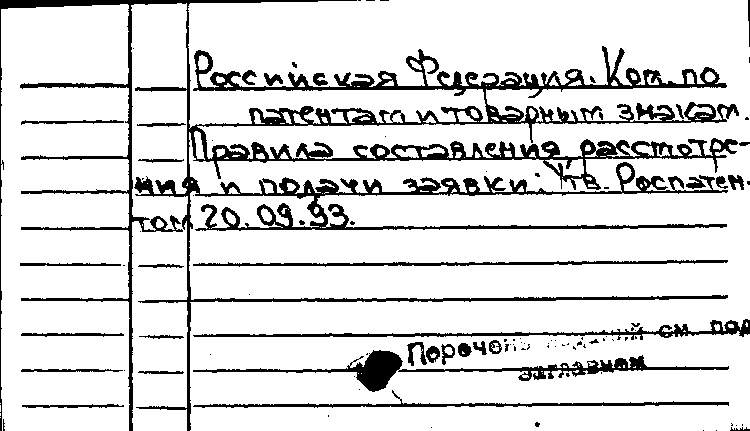 Российская Федерация. Ком. по
патентам и товарным знакам.
Правила составления расстотре-
ния и подачи заявки: Утв. Роспатен-
том 20.09.93.
Перечень изданий см. под
заглавием